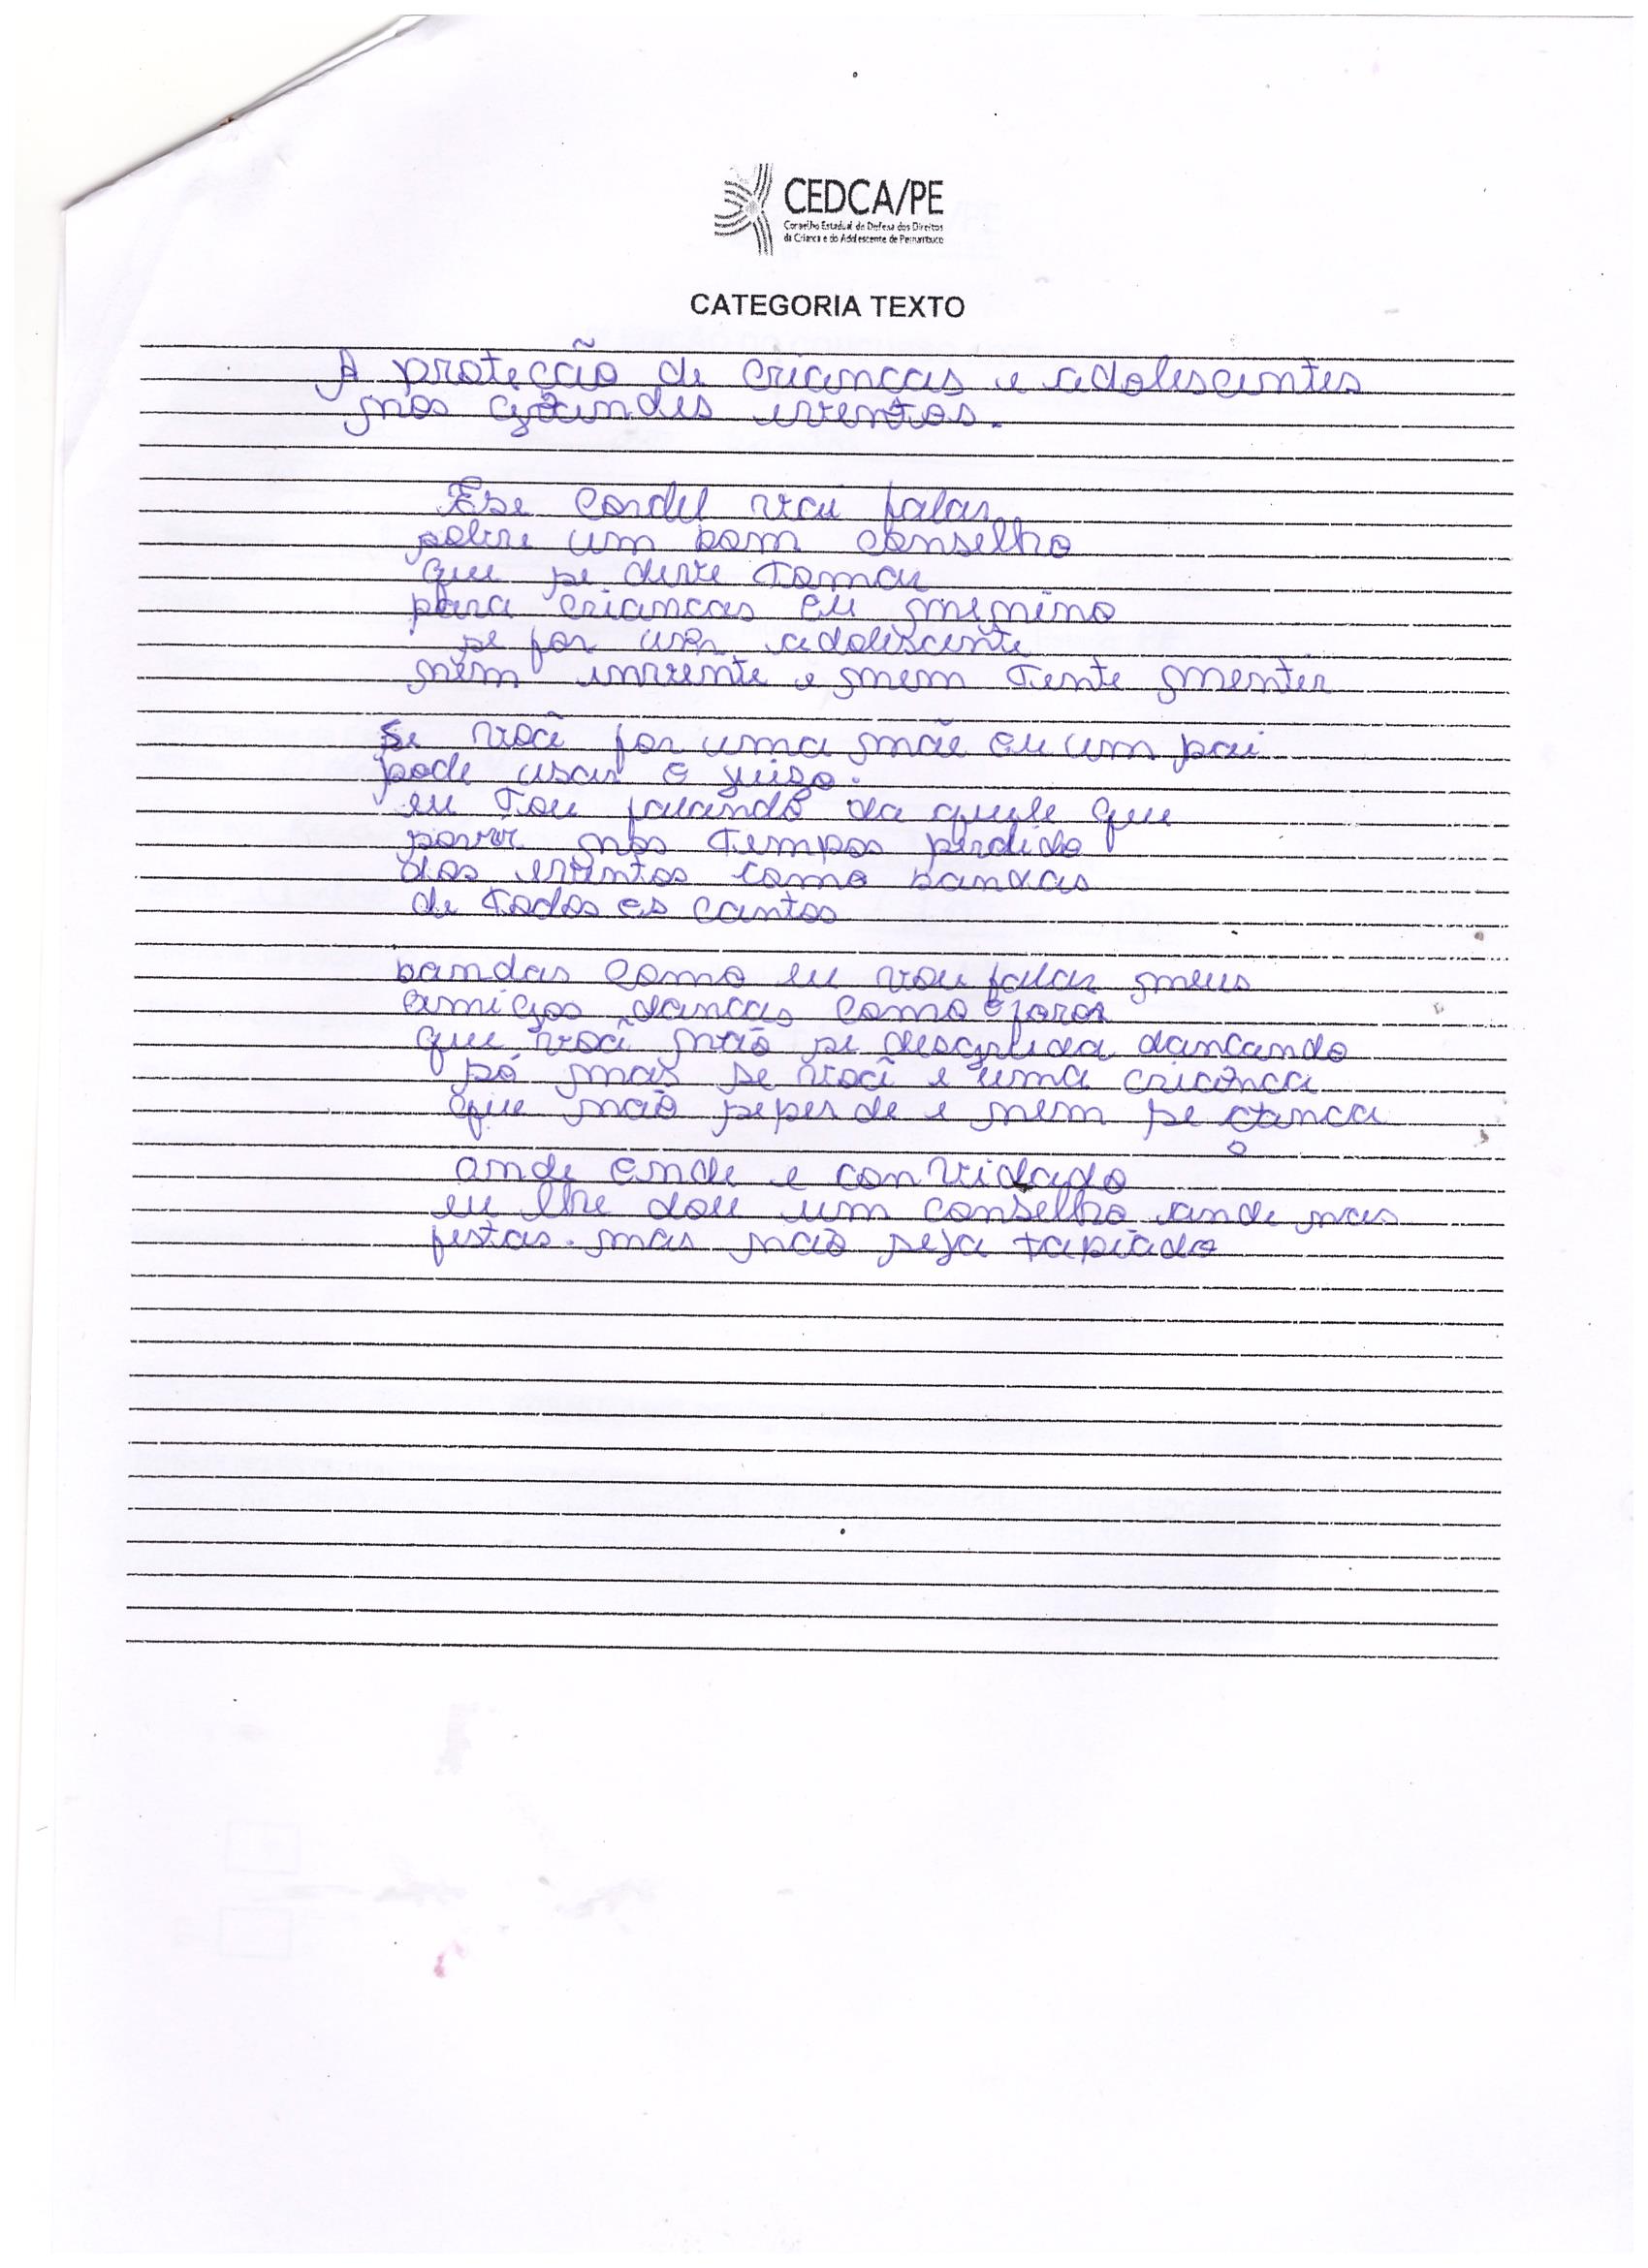 CEDCA/PE
Conselho Estadual de Defesa dos Direitos
da Criança e do Adolescente de Pernambuco
CATEGORIA TEXTO
A proteção de crianças e adolescentes
nos grandes eventos.
Ese Cordel vai falar
sobre um bom conselho
que se deve tomar
para crianças ou menino
se for um adolescente
nem invente e nem tente mentir
Se você for uma mãe ou um pai
pode usar o juizo.
eu tou falando da quele que
nos tempos perdido
dos eventos como bandas
de todos os cantos
bandas como eu vou falar meus
amigos dancas como o foror
que você não se descuida dancando
só mas se você e uma crianca
que não seperde e nem se canca
onde onde e convidado
eu lhe dou um conselho ande nas
festas. mas não seja tapiado